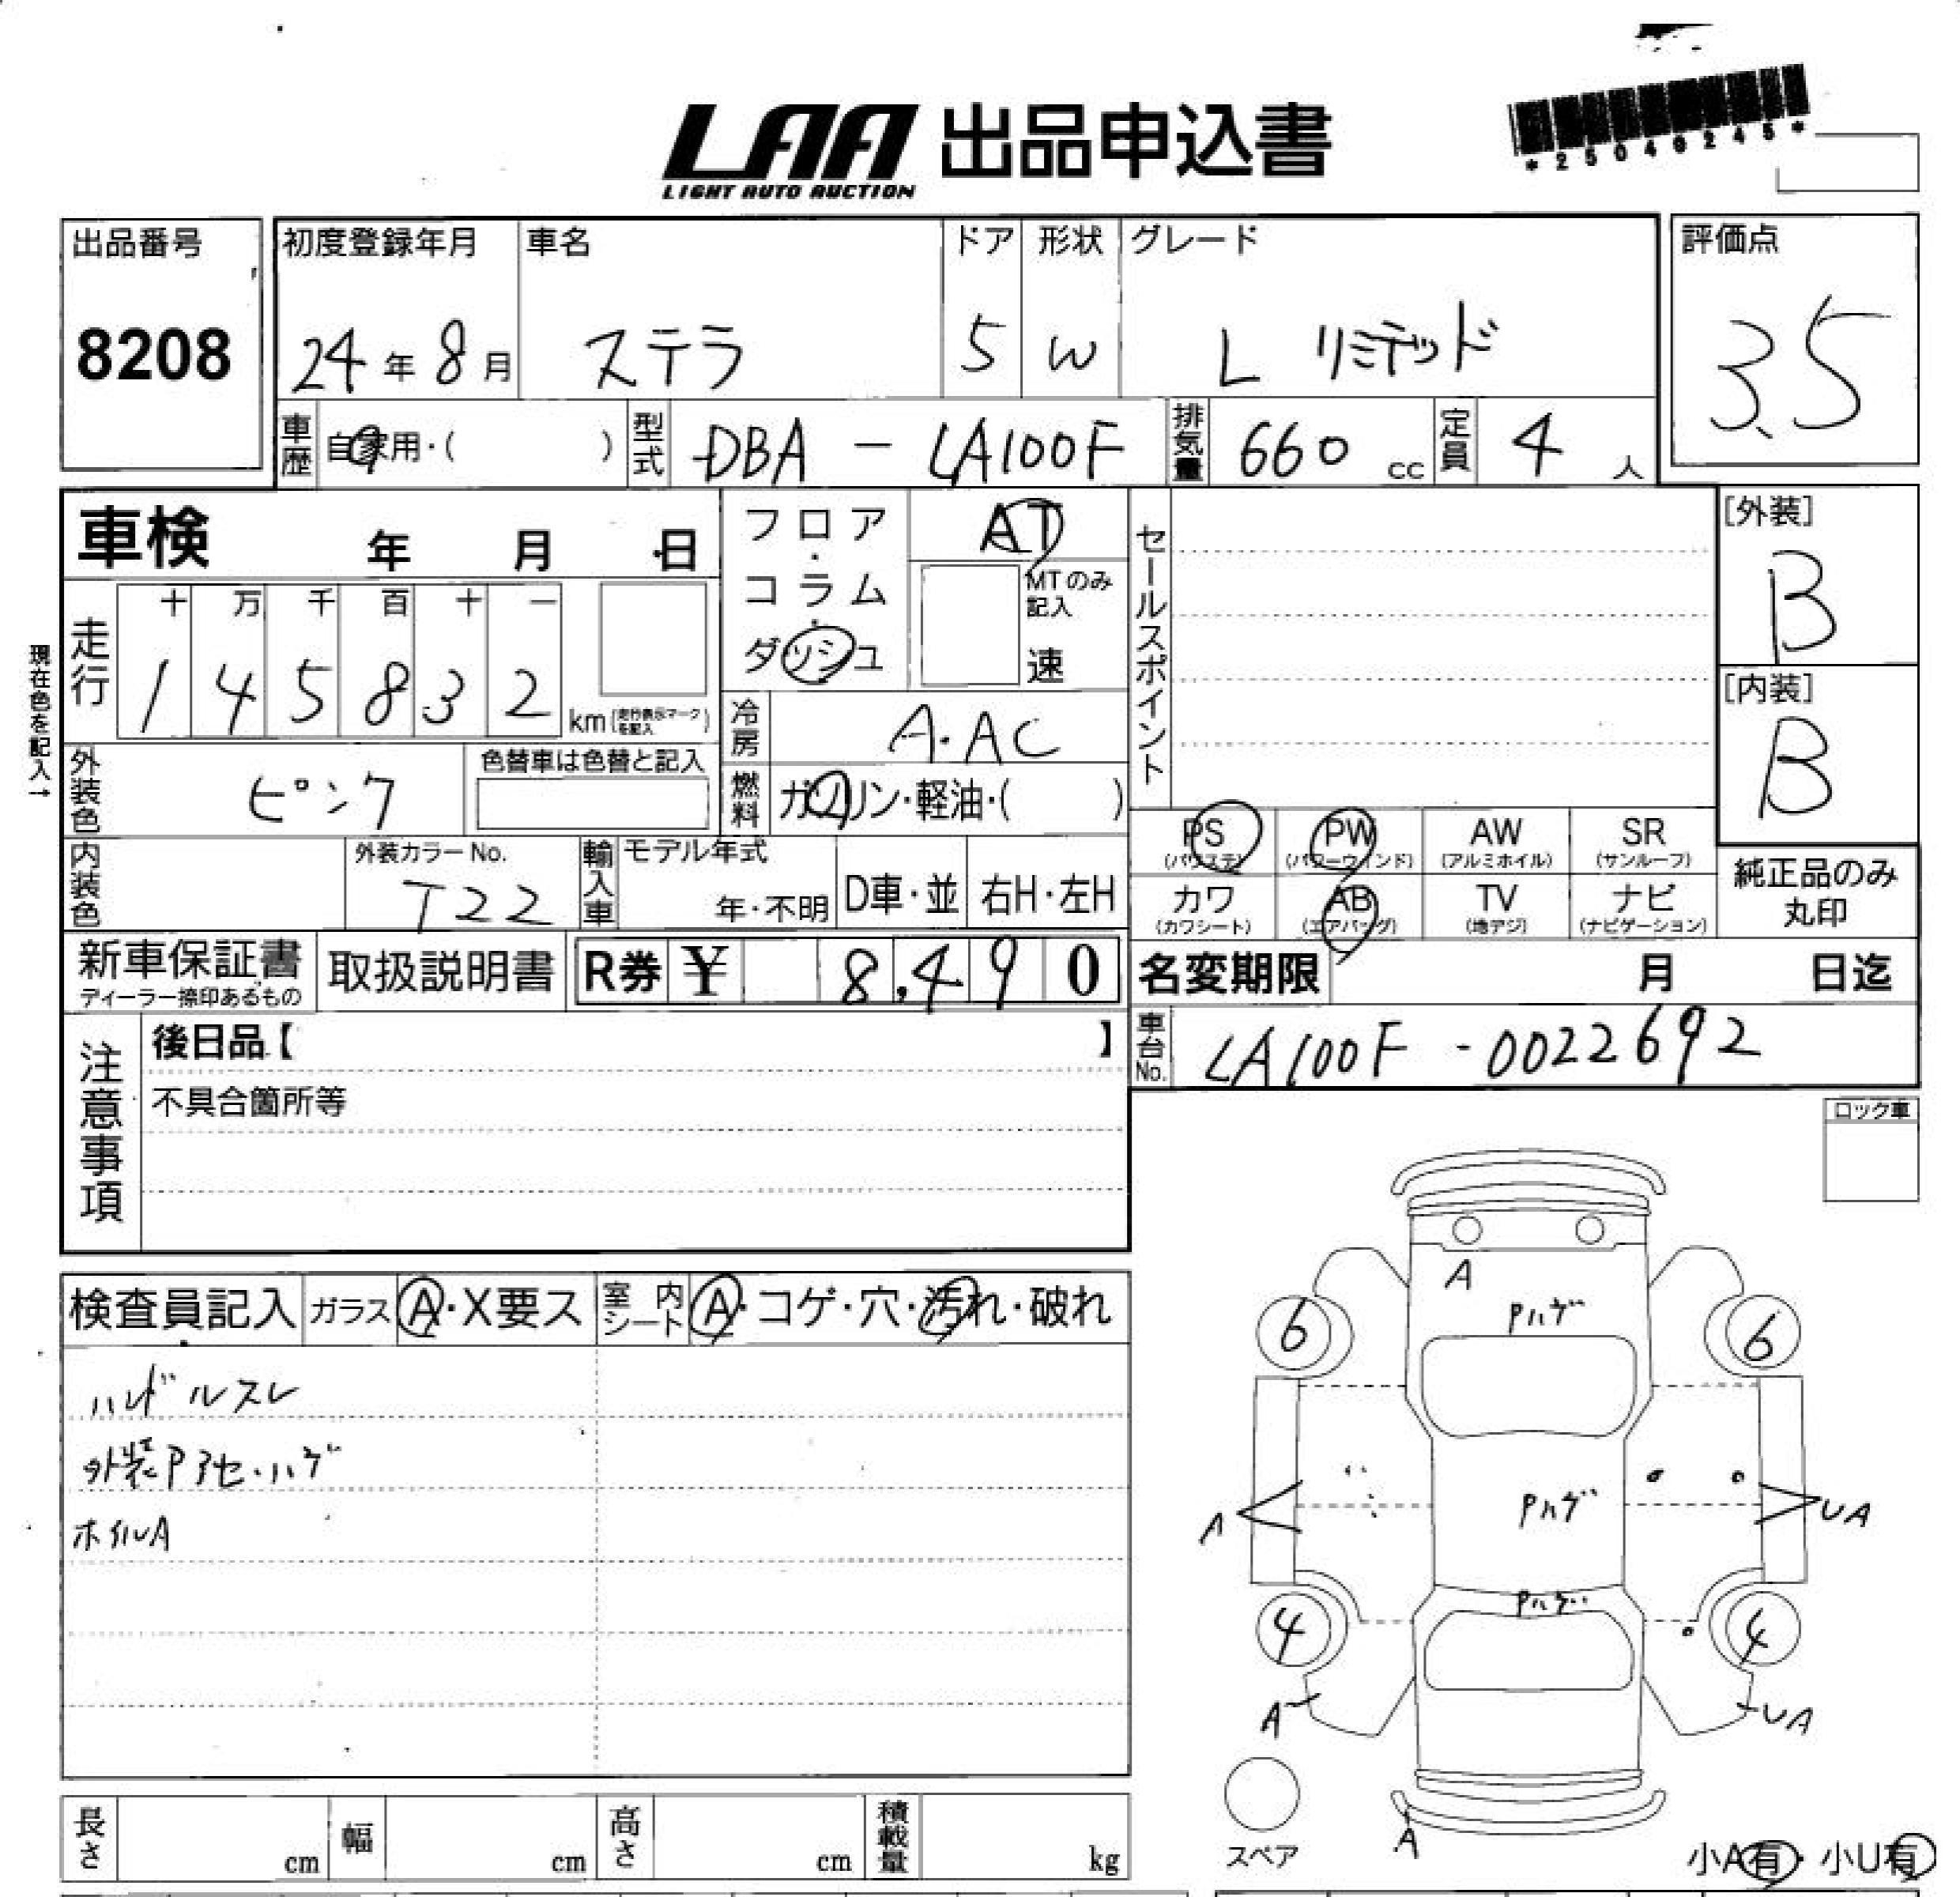 *25040245*
LAA 出品申込書
LIGHT AUTO AUCTION
出品番号 初度登録年月 車名 ドア 形状 グレード 評価点
8208 24年8月 ステラ 5 W L リミテッド 3.5
車歴 自家用・( ) 型式 DBA - LA100F 排気量 660 cc 定員 4 人
車検 年 月 日 フロア・コラム・ダッシュ AT
MTのみ記入 速
セールスポイント
[外装]
B
[内装]
B
現在色を記入→
走行 十 万 千 百 十 一
1 4 5 8 3 2 km (走行表示マークを記入)
冷房 A.AC
外装色 ピンク 色替車は色替と記入
燃料 ガソリン・軽油・( )
PS (パワステ) PW (パワーウインド) AW (アルミホイル) SR (サンルーフ)
カワ (カワシート) AB (エアバッグ) TV (地デジ) ナビ (ナビゲーション)
純正品のみ
丸印
内装色 外装カラーNo. T22 輸入車 モデル年式 年・不明 D車・並 右H・左H
新車保証書 ディーラー捺印あるもの 取扱説明書 R券 ¥ 8,490
名変期限 月 日迄
車台No. LA100F - 0022692
注意事項
後日品【 】
不具合箇所等
ロック車
検査員記入 ガラス A・X要ス 室内シート A・コゲ・穴・汚れ・破れ
ハンドルスレ
外装Pアセ・ハゲ
ホイルA
A
Pハゲ
6 6
Pハゲ
A UA
Pハゲ
4 4
A UA
スペア
A
小A有・小U有
長さ cm 幅 cm 高さ cm 積載量 kg